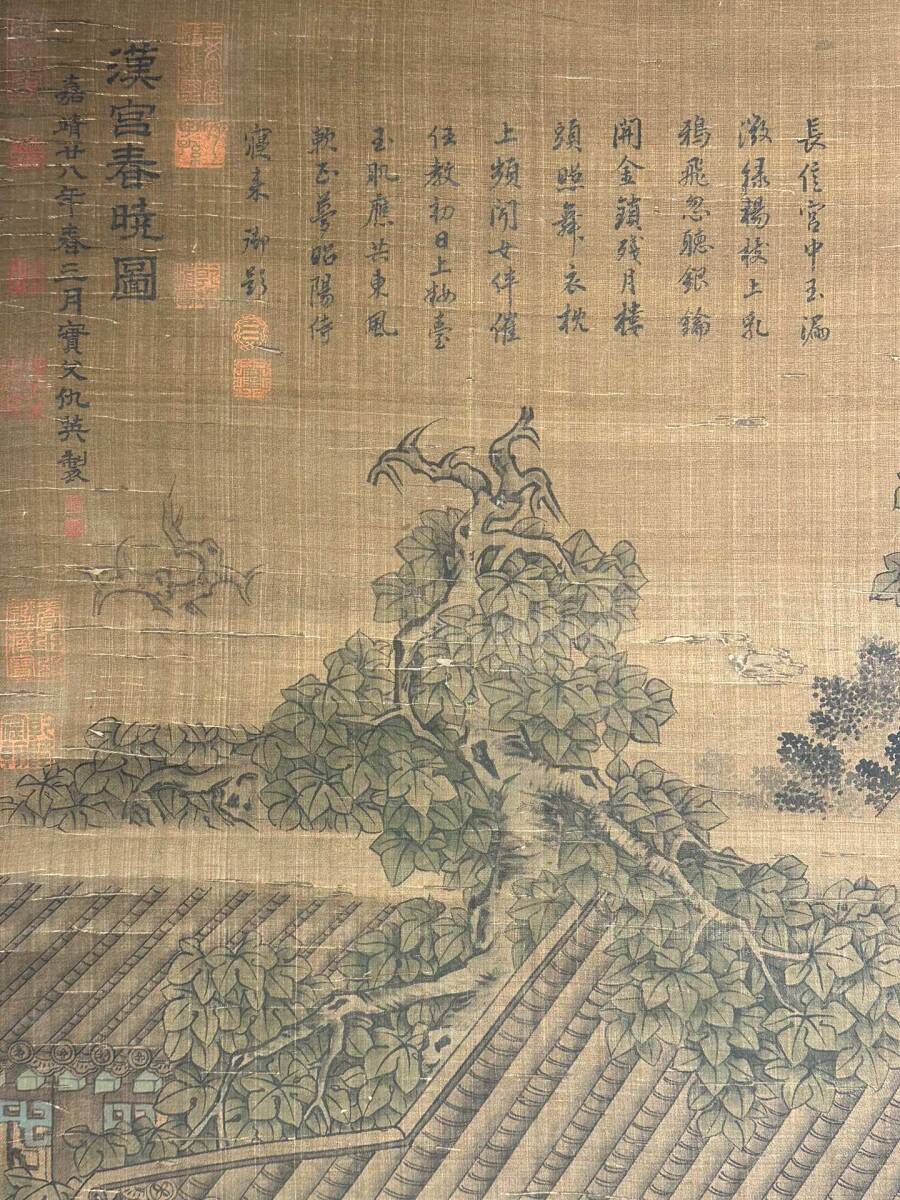 長信宮中玉漏
澂緑楊枝上乳
鴉飛忽聽銀鑰
開金鎖残月樓
頭照舞衣枕
上頻聞女伴催
任教初日上妝臺
玉肌應共東風
軟正夢昭陽侍
寢来 御影
漢宮春曉圖
嘉靖廿八年春三月實父仇英製